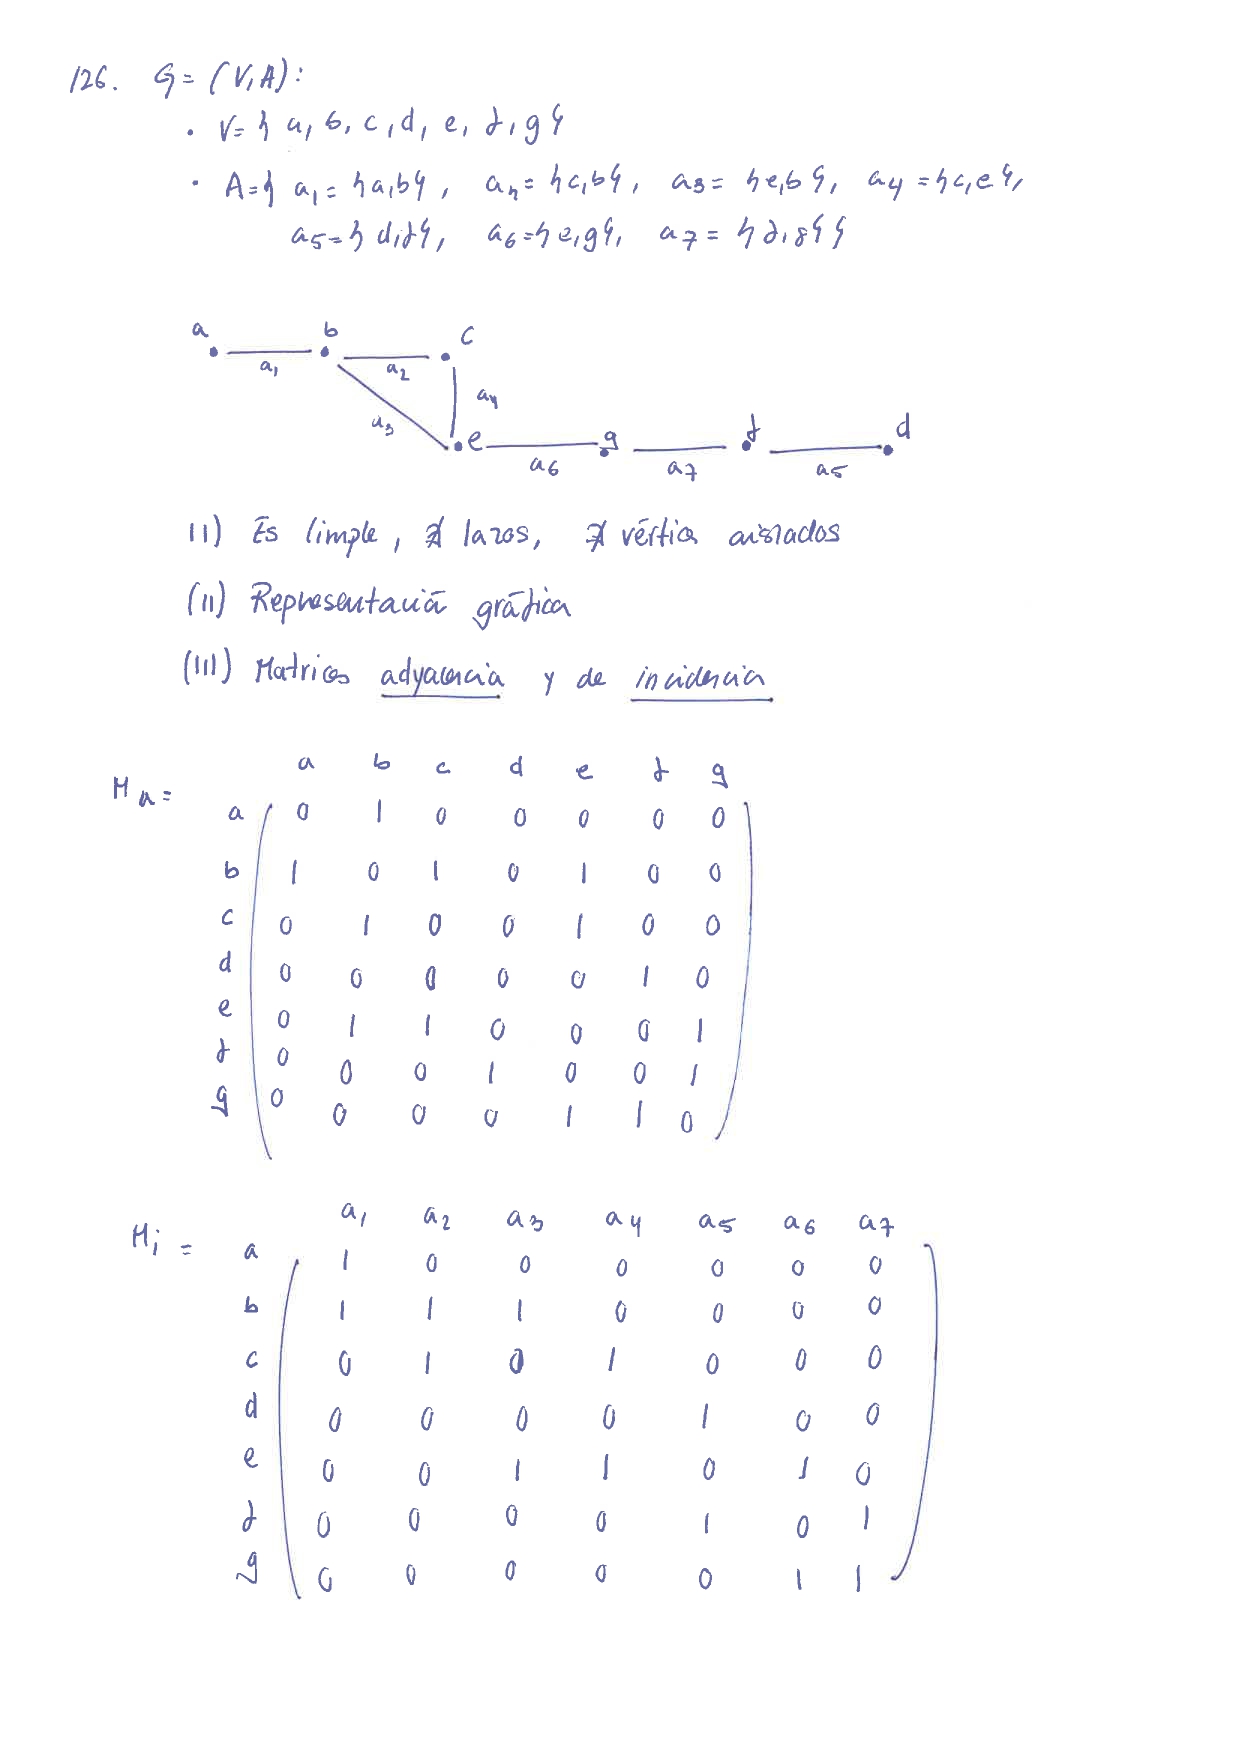 126. G = (V, A):
• V = { a, b, c, d, e, f, g }
• A = { a1 = {a,b}, a2 = {c,b}, a3 = {e,b}, a4 = {c,e},
a5 = {d,f}, a6 = {e,g}, a7 = {f,g} }
a b c
a1 a2
a3 a4
e g f d
a6 a7 a5
(I) Es simple, ∄ lazos, ∄ vértices aislados
(II) Representación gráfica
(III) Matrices adyacencia y de incidencia
a b c d e f g
Ma =
a 0 1 0 0 0 0 0
b 1 0 1 0 1 0 0
c 0 1 0 0 1 0 0
d 0 0 0 0 0 1 0
e 0 1 1 0 0 0 1
f 0 0 0 1 0 0 1
g 0 0 0 0 1 1 0
a1 a2 a3 a4 a5 a6 a7
Mi =
a 1 0 0 0 0 0 0
b 1 1 1 0 0 0 0
c 0 1 0 1 0 0 0
d 0 0 0 0 1 0 0
e 0 0 1 1 0 1 0
f 0 0 0 0 1 0 1
g 0 0 0 0 0 1 1